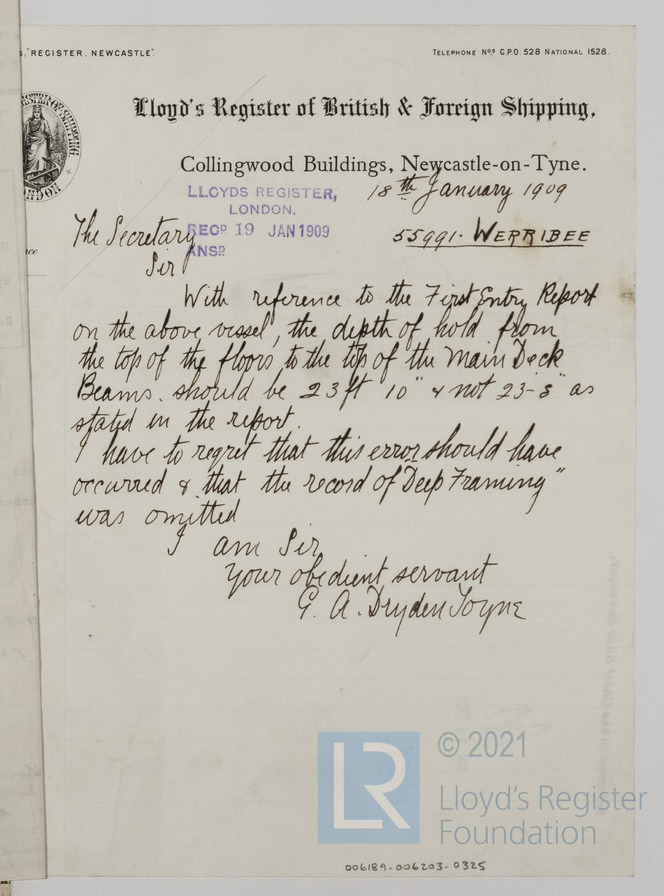 S, "REGISTER, NEWCASTLE".
TELEPHONE Nos G.P.O. 528 NATIONAL 1528.
Lloyd's Register of British & Foreign Shipping,
Collingwood Buildings, Newcastle-on-Tyne.
18th January 1909
LLOYDS REGISTER,
LONDON.
RECD 19 JAN 1909
ANSD
The Secretary
55991. WERRIBEE
Sir
With reference to the First Entry Report
on the above vessel, the depth of hold from
the top of the floors to the top of the Main Deck
Beams. should be 23ft 10" & not 23-8" as
stated in the report.
I have to regret that this error should have
occurred & that the record of Deep Framing"
was omitted
I am Sir
Your obedient servant
G. A. Dryden Toyne
LR
© 2021
Lloyd's Register
Foundation
006189-006203-0325